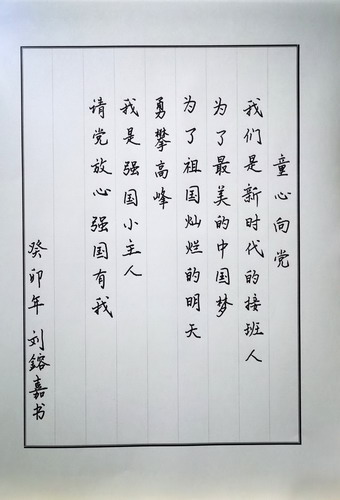 童心向党
我们是新时代的接班人
为了最美的中国梦
为了祖国灿烂的明天
勇攀高峰
我是强国小主人
请党放心强国有我
癸卯年 刘鎔嘉书